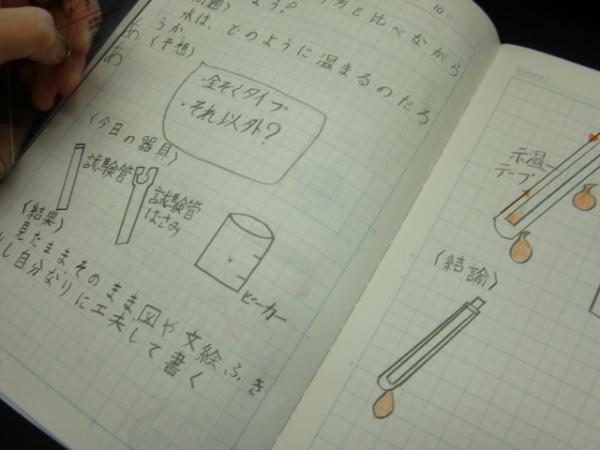 10
よう?
方と比べながら
水は、どのように温まるのだろ
うか。
(予想)
・金ぞくタイプ
・それ以外?
(今日の器具)
試験管
試験管
ばさみ
ビーカー
(結果)
見たままそのまま、図や文絵、ふき
し自分なりに工夫して書く
示温
テープ
(結論)